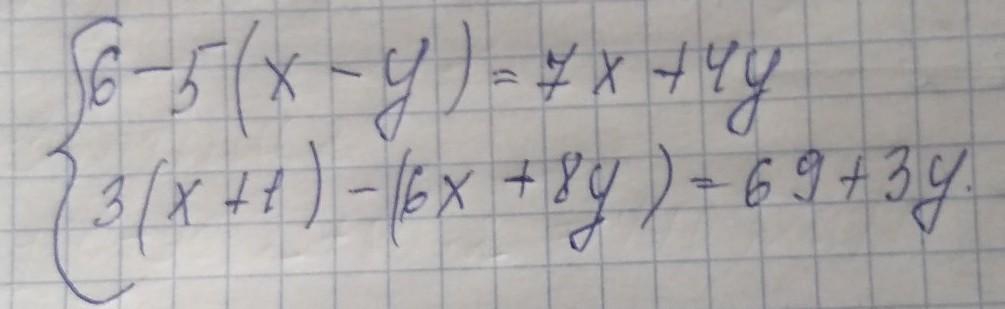 6-5(x-y)=7x+4y
3(x+1)-(6x+8y)=69+3y.